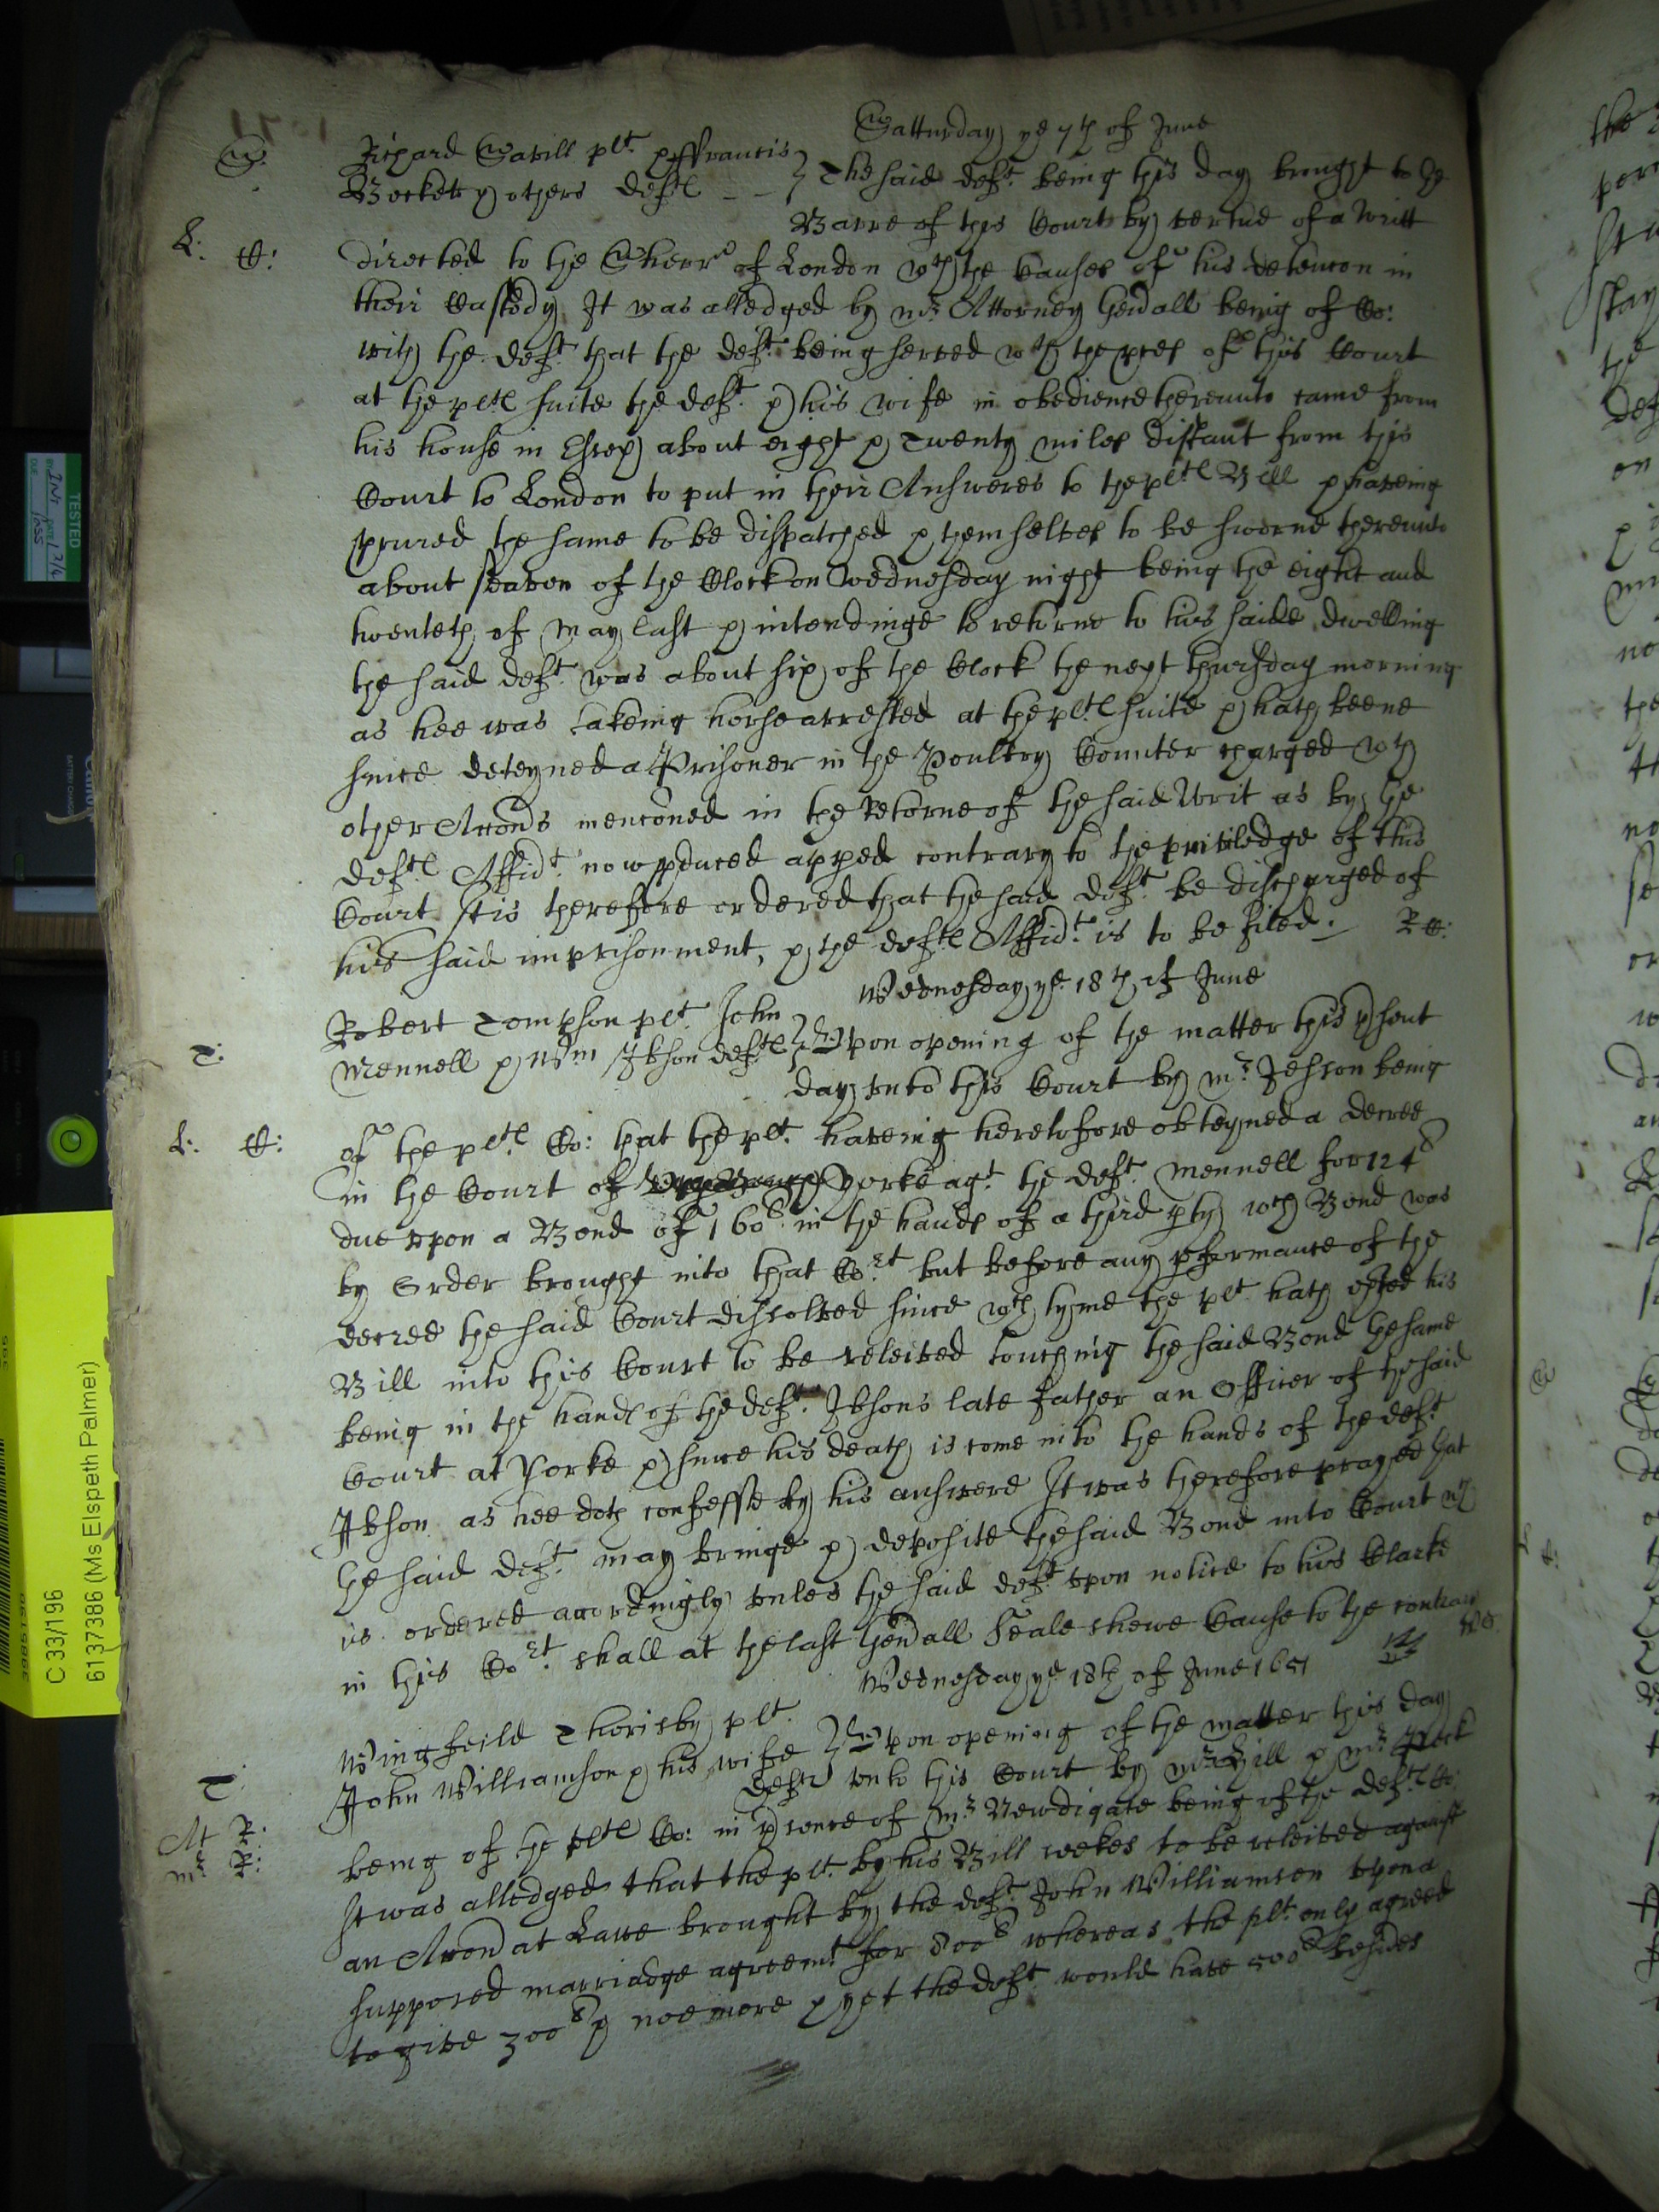 Satturday ye 7th of June
S:
Richard Savill plt ffrancis
Beckett & others defts
The said deft being this day brought to the
Barre of this Court by vertue of a Writt
L: C:
directed to the Sherr of London wth the Causes of his detencon in
their Custody It was alledged by mr Attorney Genall being of Co:
with the deft that the deft being served wth the pces of this Court
at the plts suite the deft & his wife in obedience thereunto came from
his house in Essex about eight & Twenty miles distant from this
Court to London to put in their Answeres to the plts Bill & haveing
pcured the same to be dispatched & themselves to be sworne thereunto
about seaven of the Clock on Wednesday night being the eight and
twenteth of May last & intendinge to retorne to his saide dwelling
the said deft was about six of the Clock the next thursday morning
as hee was takeing horse arrested at the plts suite & hath beene
since deteyned a Prisoner in the Poultry Counter charged wth
other Accons menconed in the Retorne of the said Writ as by the
defts Affidt now pduced apped contrary to the priviledge of this
Court It is therefore ordered that the said deft be discharged of
his said imprisonment, & the defts Affidt is to be filed. R C:
Wednesday ye 18th of June
T:
Robert Tompson plt John
Mennell & Wm Ibson defts
Upon opening of the matter this psent
day unto this Court by mr Jesson being
L: C:
of the plts Co: that the plt haveing heretofore obteyned a decree
in the Court of Yorke agt the deft Mennell for 124l
due upon a Bond of 160l in the hands of a third pty wch Bond was
by Order brought into that Cort but before any pformance of the
decree the said Court dissolved since wch tyme the plt hath exhted his
Bill into this Court to be releived touching the said Bond the same
being in the hands of the deft Ibsons late father an Officer of the said
Court at Yorke & since his death is come into the hands of the deft
Ibson as hee doth confesse by his answere It was therefore prayed that
the said deft may bringe & deposite the said Bond into Court wch
is ordered accordingly unles the said deft upon notice to his Clarke
in this Cort shall at the last Genall Seale shewe Cause to the contrary
Wednesday ye 18th of June 1651
T
Wingfeild Thorisby plt
John Williamson & his wife
defts
Upon opening of the matter this day
unto this Court by mr Hill & mr
being of the plts Co: in psence of mr Newdigate being of the defts Co:
It was alledged that the plt by his Bill seekes to be releived against
an Accon at Lawe brought by the deft John Williamson upon a
supposed marriadge agreemt for 800l whereas the plt only agreed
to give 300l & noe more & yet the deft would have 500l besides
TESTED
C 33/196
6137386 (Ms Elspeth Palmer)